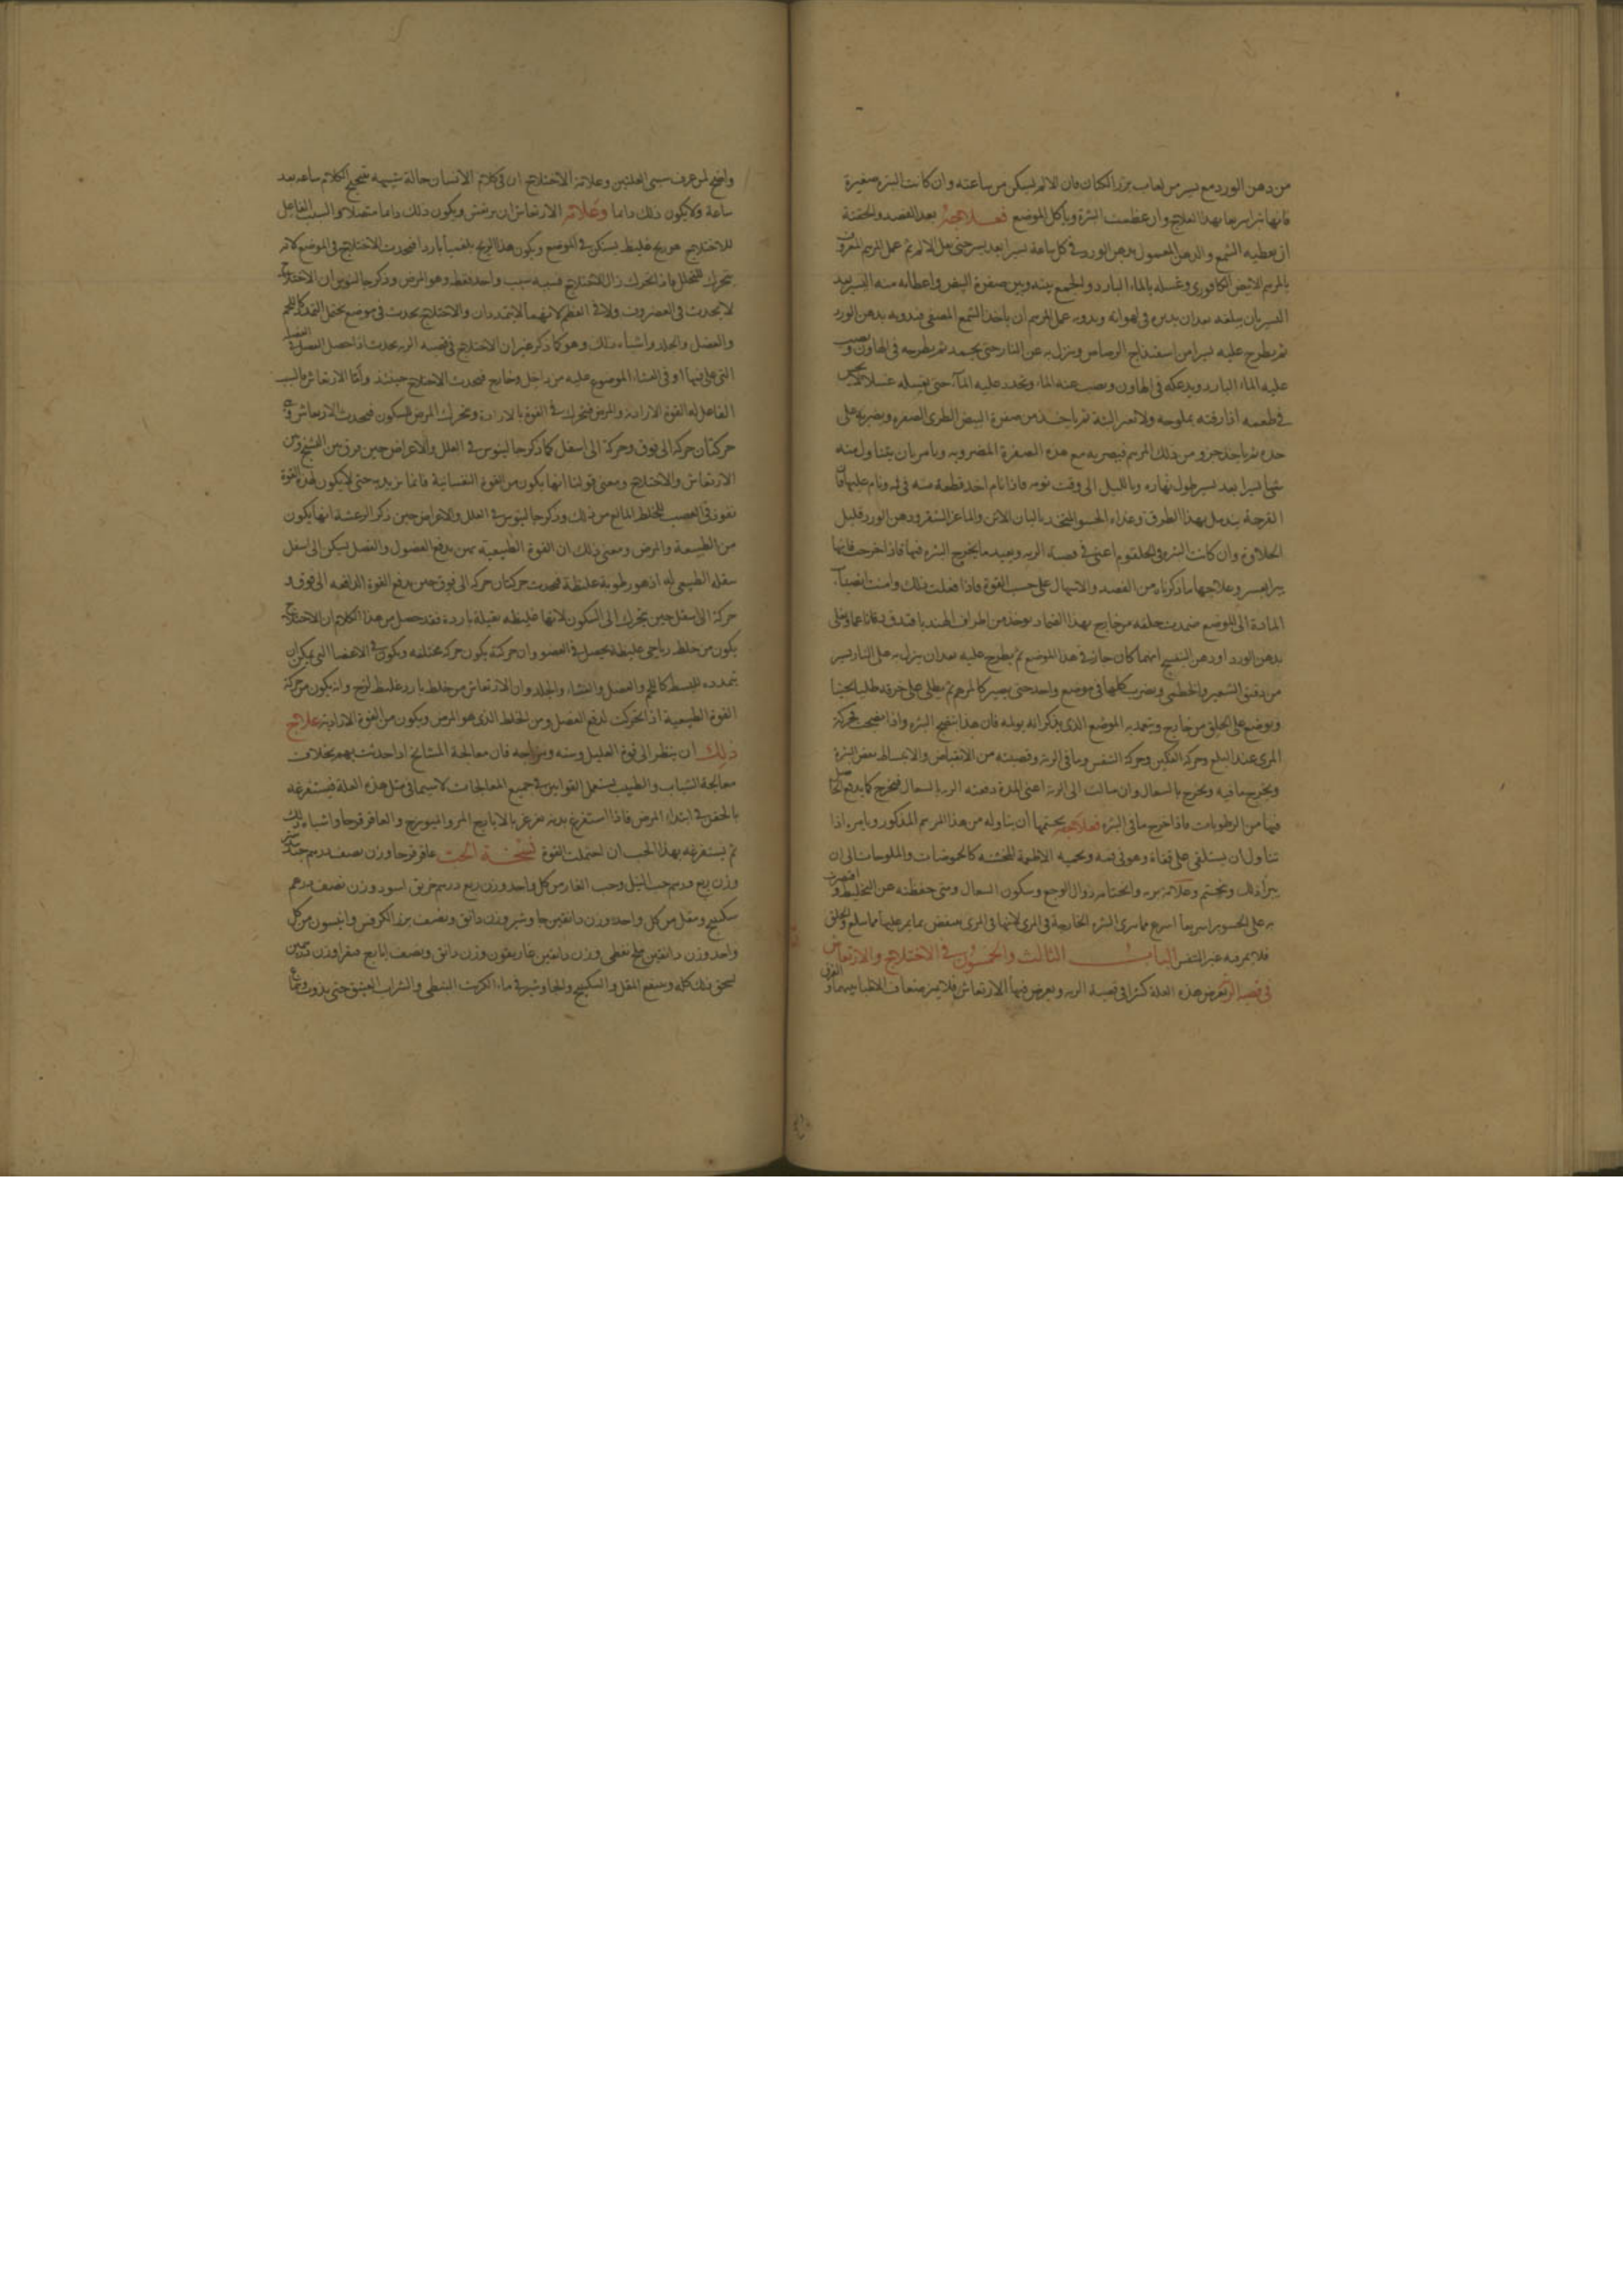 من دهن الورد مع يسير من لعاب بزر الكتان فان الالم يسكن من ساعته وان كانت البثره صغيرة
فانها تبرا سريعا بهذا العلاج وان عظمت البثرة وياكل الموضع فعلاجه بعد الفصد والحقنة
ان يعطيه الشمع والدهن المعمول بدهن الورد في كل ساعة يسيرا بعد يسير حتى يقل الالم ثم عمل المرهم المعروف
بالمرهم الابيض الكافوري وغسله بالماء البارد والجمع بينه وبين صفرة البيض واعطائه منه اليسير بعد
اليسير بان يبلعه بعد ان يديره في لهواته ويدوبه عمل المرهم ان ياخذ الشمع المصفى فيذوبه بدهن الورد
ثم يطرح عليه يسيرا من اسفيذاج الرصاص وينزل به عن النار حتى يجمد ثم يطرحه في الهاون ويصب
عليه الماء البارد ويدعكه في الهاون ويصب عنه الماء ويجدد عليه الماء حتى يغسله غسلا
في طعمه اذا رفته بملوحه ولا تغير البتة ثم ياخذ من صفرة البيض الطرى الصفره ويضربه على
حده ثم ياخذ جزو من ذلك المرهم فيضربه مع هذه الصفرة المضروبه ويامر بان يتناول منه
شيا يسيرا بعد يسير طول نهاره وبالليل الى وقت نومه فاذا نام اخذ قطعة منه في فيه ونام عليها فان
القرحة يندمل بهذا الطرق وغذاء الحسو المتخذ بالبان الاتن والماعز السقر ودهن الورد قليل
الحلاوة وان كانت البثره في الحلقوم اعني في قصبة الريه وبعيد ما يخرج البثره فيها فاذا خرجت فانها
تبرا بعسر وعلاجها ما ذكرناه من الفصد والاسهال على حسب القوة فاذا فعلت ذلك وامنت انصباب
المادة الى الموضع ضمدت حلقه من خارج بهذا الضماد يوخذ من اطراف الهندبا فتدق دقا ناعما ويغلى
بدهن الورد او دهن البنفسج ايهما كان جاز في هذا الموضع ثم يطرح عليه بعد ان ينزل به على النار يسير
من دقيق الشعير والخطمى ويضرب كلها في موضع واحد حتى يصير كالمرهم ثم يطلى على خرقه طليا ثخينا
ويوضع على الحلق من خارج ويتعمد به الموضع الذي يذكر انه يولمه فان هذا ينضج البثره واذا نضجت بحركة
المرى عند البلع وحركة الفكين وحركة النفس وما في الرئة وقصبته من الانقباض والانبساط بعض البثرة
ويخرج ما فيه ويخرج بالسعال وان سالت الى الريه اعنى المدة دفعته الريه بالسعال فيخرج كما يدفع
فيها من الرطوبات فاذا خرج ما في البثره فعلاجه بختمها ان يناوله من هذا المرهم المذكور ويامره اذا
تناول ان يستلقى على قفاه وهو في فمه ويحميه الاطعمة الخشنه كالحموضات والملوحات الى ان
يبرا ذلك ويختم وعلامة بريه والختامه زوال الوجع وسكون السعال ومتى حفظته عن التخليط واقتصرت
به على الحسو برا سريعا اسرع ما يبرى البثره الخارجة في المرى لانها في المرى يتنفض بما يمر عليها مما يبلع والحلق
فلا يمر فيه غير النفس الباب الثالث والخمسون في الاختلاج والارتعاش
في قصبة الرئة تعرض هذه العلة كثيرا في قصبة الريه ويعرض فيها الارتعاش فلا يميز ضعاف الاطباء بينهما والفرق
واضح لمن عرف سببى العلتين وعلامة الاختلاج ان في كلام الانسان حالة شبيهه بتهيج الكلام ساعه بعد
ساعة ولا يكون ذلك دايما وعلامة الارتعاش ان يرتعش ويكون ذلك دايما متصلا والسبب الفاعل
للاختلاج هو ريح غليظ يستكن في الموضع ويكون هذا الريح بلغميا باردا فيحدث الاختلاج في الموضع كانه
يتحرك للتحلل فاذا تحرك زال الاختلاج فسببه سبب واحد فقط وهو المرض وذكر جالينوس ان الاختلاج
لا يحدث في الغضروف ولا في العظم لانهما لا يتمددان والاختلاج يحدث في موضع يحتمل التمدد كاللحم
والعضل والجلد واشباه ذلك وهو كما ذكر غير ان الاختلاج في قصبة الريه يحدث اذا حصل الفضل في العضل
التي على فمها او في الغشاء الموضوع عليه من داخل وخارج فيحدث الاختلاج حينئذ واما الارتعاش فالسبب
الفاعل له القوة الارادية والمرض فتحرك في القوة بالارادة ويتحرك المرض للسكون فيحدث الارتعاش وفيه
حركتان حركة الى فوق وحركة الى اسفل كما ذكر جالينوس في العلل والاعراض حين فرق بين التشنج وبين
الارتعاش والاختلاج ومعنى قولنا انها يكون من القوة النفسانية فانما نريد به حتى لا يكون لهذه القوة
نفوذ في العصب للخلط المانع من ذلك وذكر جالينوس في العلل والاعراض حين ذكر الرعشة انها يكون
من الطبيعة والمرض ومعنى ذلك ان القوة الطبيعية تهمن بدفع الفضول والفضل يسكن الى اسفل
سفله الطبيعي له اذ هو رطوبة غليظة فيحدث حركتان حركة الى فوق حين يدفع القوة الدافعه الى فوق و
حركة الى اسفل حين يتحرك الى السكون لانها غليظه ثقيلة باردة فقد حصل من هذا الكلام ان الاختلاج
يكون من خلط رياحي غليظ يحصل في العضو وان حركته يكون حركة مختلفه ويكون في الاعضا التي يمكن ان
يتمدد وينبسط كاللحم والعضل والغشاء والجلد وان الارتعاش من خلط بارد غليظ لزج وانه يكون من حركة
القوة الطبيعية اذا تحركت لدفع الفضل ومن الخلط الذي هو المرض ويكون من القوة الارادية علاج
ذلك ان ينظر الى قوة العليل وسنه ومزاجه فان معالجة المشايخ اذا حدثت بهم بخلاف
معالجة الشباب والطبيب يستعمل القوانين في جميع المعالجات لا سيما في مثل هذه العلة فيستفرغه
بالحقن في ابتداء المرض فاذا استفرغ بدنه غرغر بالايارج المر والميويزج والعاقرقرحا واشباه ذلك
ثم يستفرغه بهذا الحب ان احتملت القوة نسخة الحب عاقرقرحا وزن نصف درهم جندبيدستر
وزن ربع درهم حب النيل وحب الغار من كل واحد وزن ربع درهم خربق اسود وزن نصف درهم
سكبينج ومقل من كل واحد وزن دانقين جاوشير وزن دانق ونصف بزر الكرفس وانيسون من كل
واحد وزن دانقين ملح نفطى وزن دانقين غاريقون وزن دانق ونصف ايارج فيقرا وزن درهمين
يسحق ذلك كله وينقع المقل والسكبينج والجاوشير في ماء الكرنب النبطى والشراب العتيق حتى يذوب